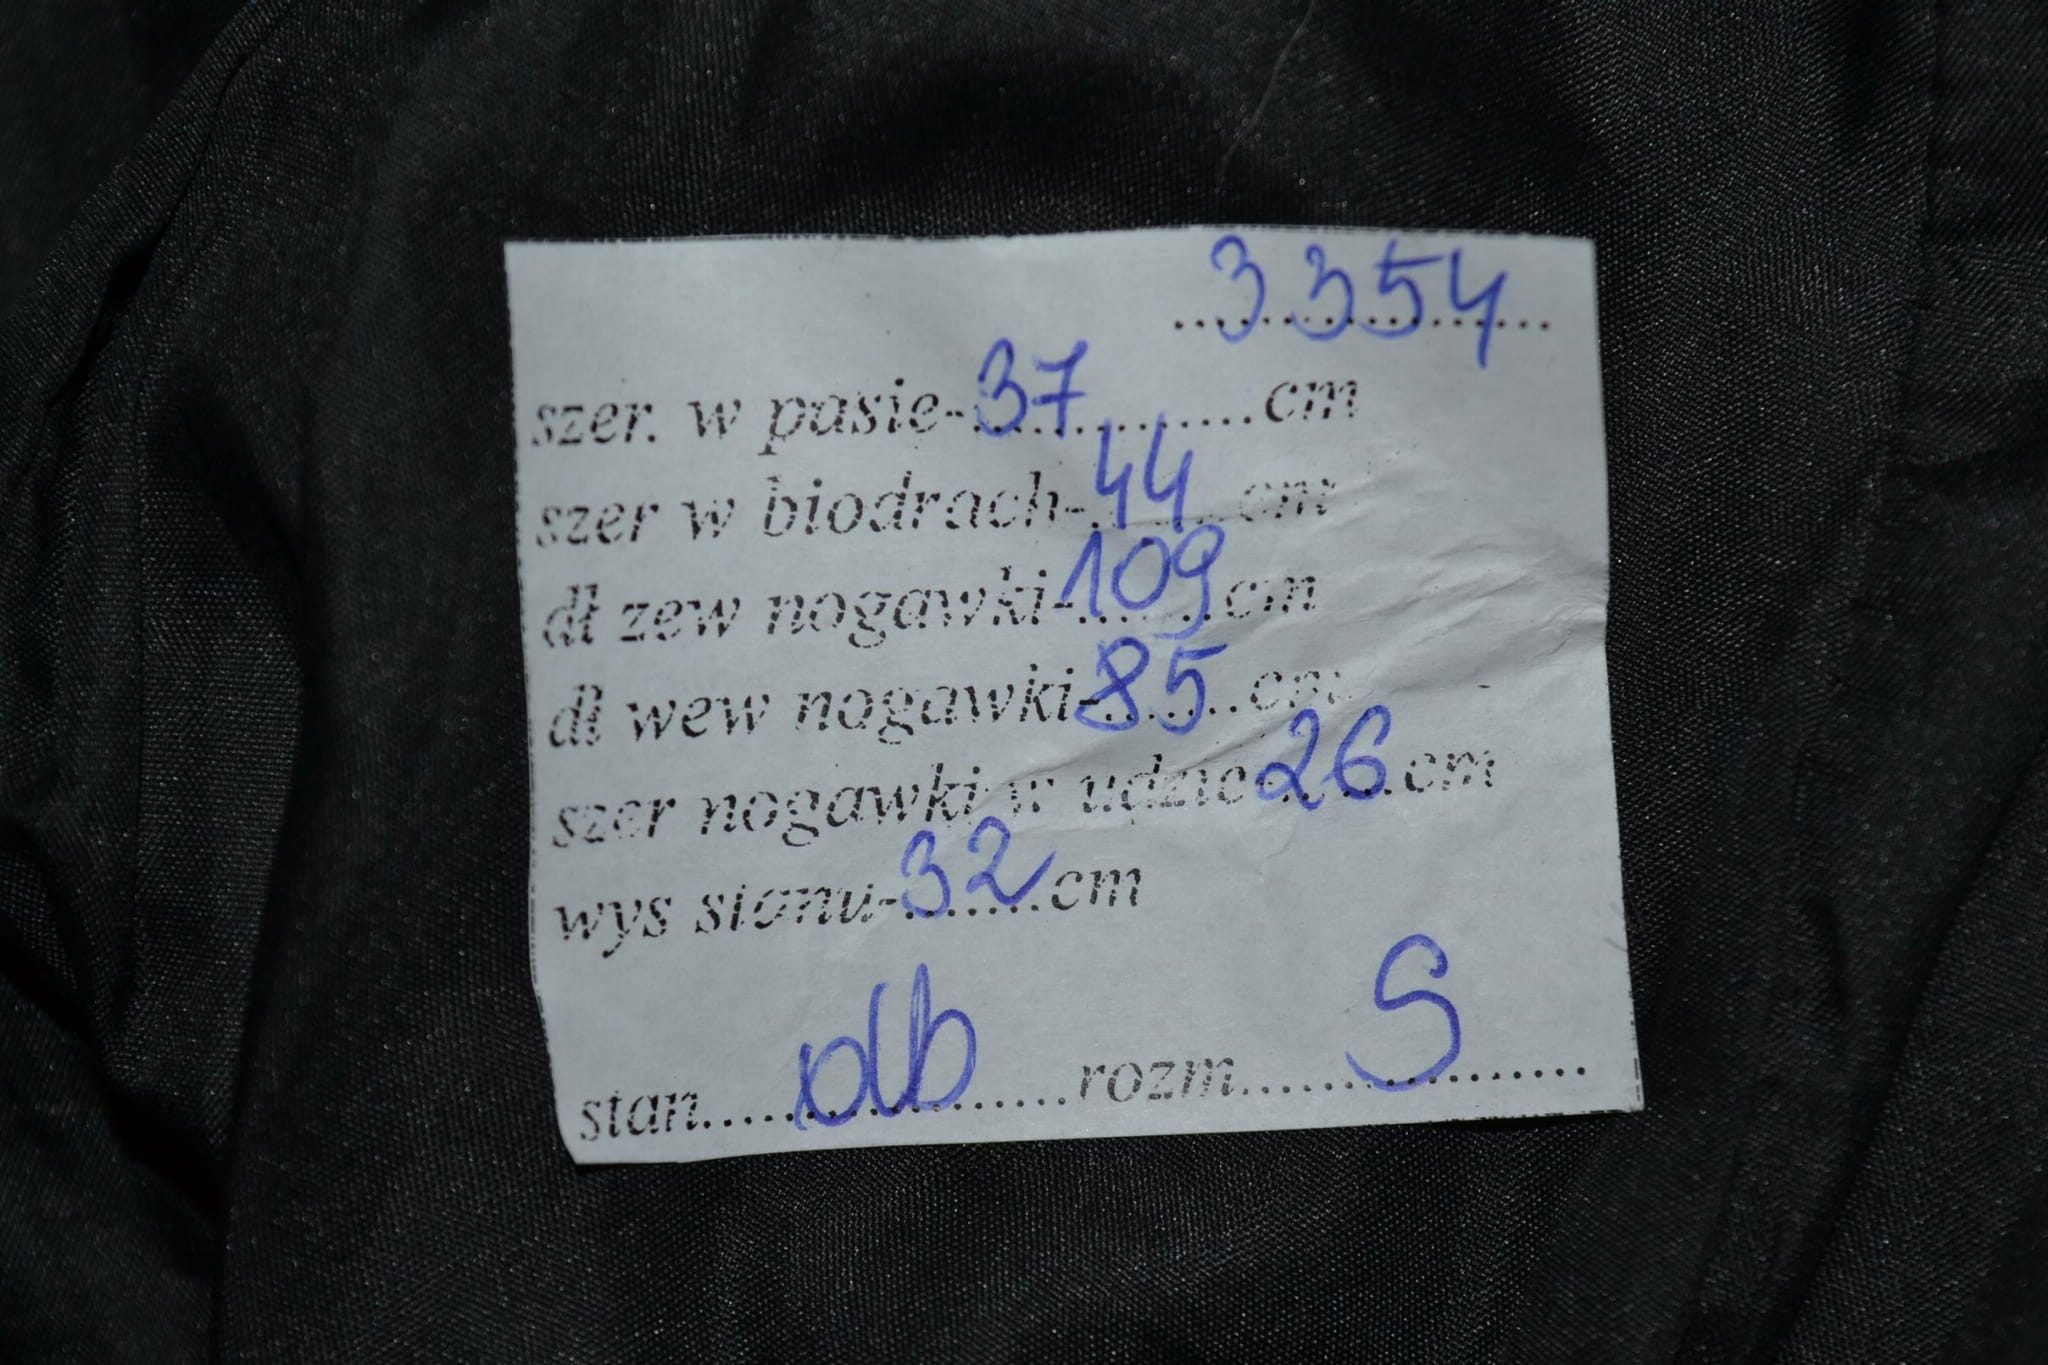 ..3354..
szer. w pasie-37..........cm
szer w biodrach-44....cm
dł zew nogawki-109cm
dł wew nogawki-85..cm
szer nogawki w udzie 26 cm
wys stanu-32cm
stan....db....rozm....S....